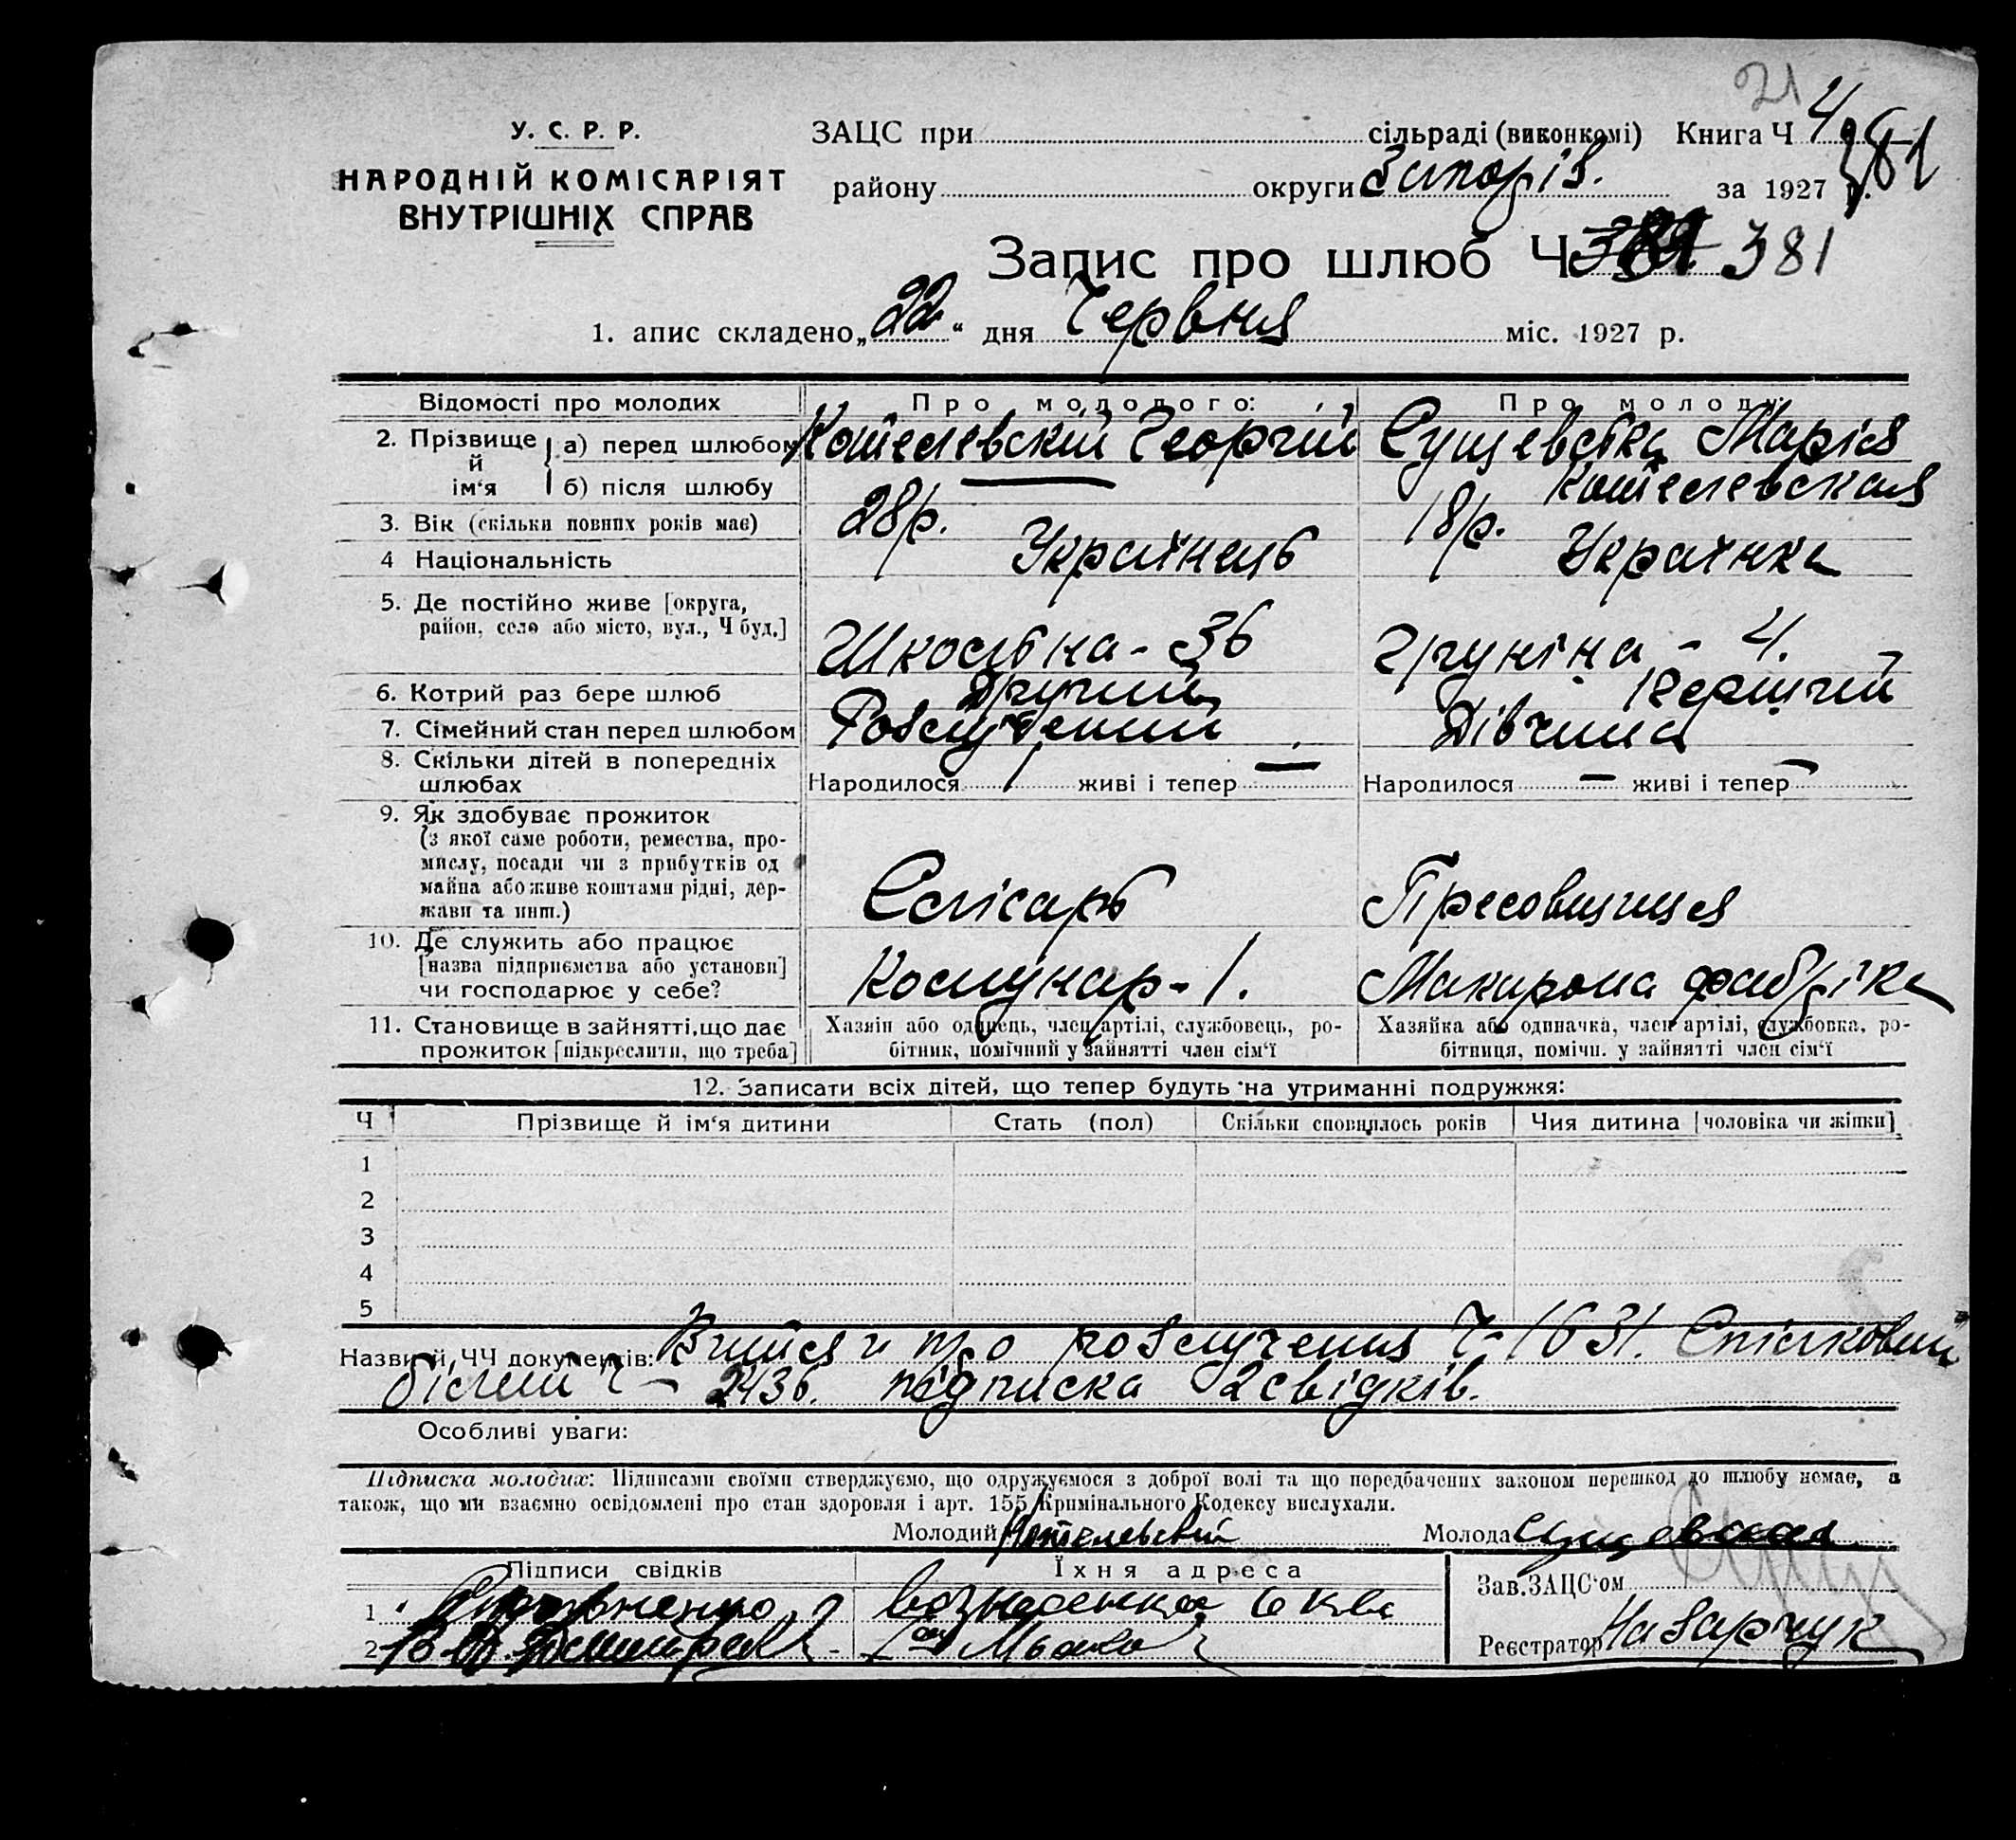 21
У. С. Р. Р.
НАРОДНІЙ КОМІСАРІЯТ
ВНУТРІШНІХ СПРАВ
ЗАЦС при сільраді (виконкомі) Книга Ч 4
381
району округи Запоріз. за 1927 р.
Запис про шлюб Ч 381
1. апис складено „22“ дня Червня міс. 1927 р.
Відомості про молодих Про молодого: Про молоду:
2. Прізвище й ім‘я а) перед шлюбом Котелевскій Георгій Сущевська Марія
б) після шлюбу Котелевская
3. Вік (скільки повних років має) 28 р. 18 р.
4 Національність Українець Українка
5. Де постійно живе [округа,
район, село або місто, вул., Ч буд.] Школьна - 36 Груніна - 4.
6. Котрий раз бере шлюб Другий Первий
7. Сімейний стан перед шлюбом Розлучений Дівчина
8. Скільки дітей в попередніх
шлюбах Народилося 1 живі і тепер — Народилося — живі і тепер —
9. Як здобуває прожиток
(з якої саме роботи, ремества, про-
мислу, посади чи з прибутків од
майна або живе коштами рідні, дер-
жави та инш.) Слісарь Пресовщиця
10. Де служить або працює
[назва підприємства або установи]
чи господарює у себе? Комунар - 1. Макарона фабріка
11. Становище в зайнятті, що дає
прожиток [підкреслити, що треба]
Хазяїн або одинець, член артілі, службовець, ро-
бітник, помічний у зайнятті член сім‘ї
Хазяйка або одиначка, член артілі, службовка, ро-
бітниця, помічн. у зайнятті член сім‘ї
12. Записати всіх дітей, що тепер будуть на утриманні подружжя:
Ч Прізвище й ім‘я дитини Стать (пол) Скільки сповнилось років Чия дитина [чоловіка чи жінки]
1
2
3
4
5
Назви й ЧЧ документів: про розлучения Ч - 1631. Спілковий
білет Ч - 2436. підписка 2 свідків.
Особливі уваги:
Підписка молодих: Підписами своїми стверджуємо, що одружуємося з доброї волі та що передбачених законом перешкод до шлюбу немає, а
також, що ми взаємно освідомлені про стан здоровля і арт. 155 Кримінального Кодексу вислухали.
Молодий Котелевский Молода Сущевская
Підписи свідків Їхня адреса
Зав. ЗАЦС‘ом
1 Вознесенка
2
Реєстратор Назарчук